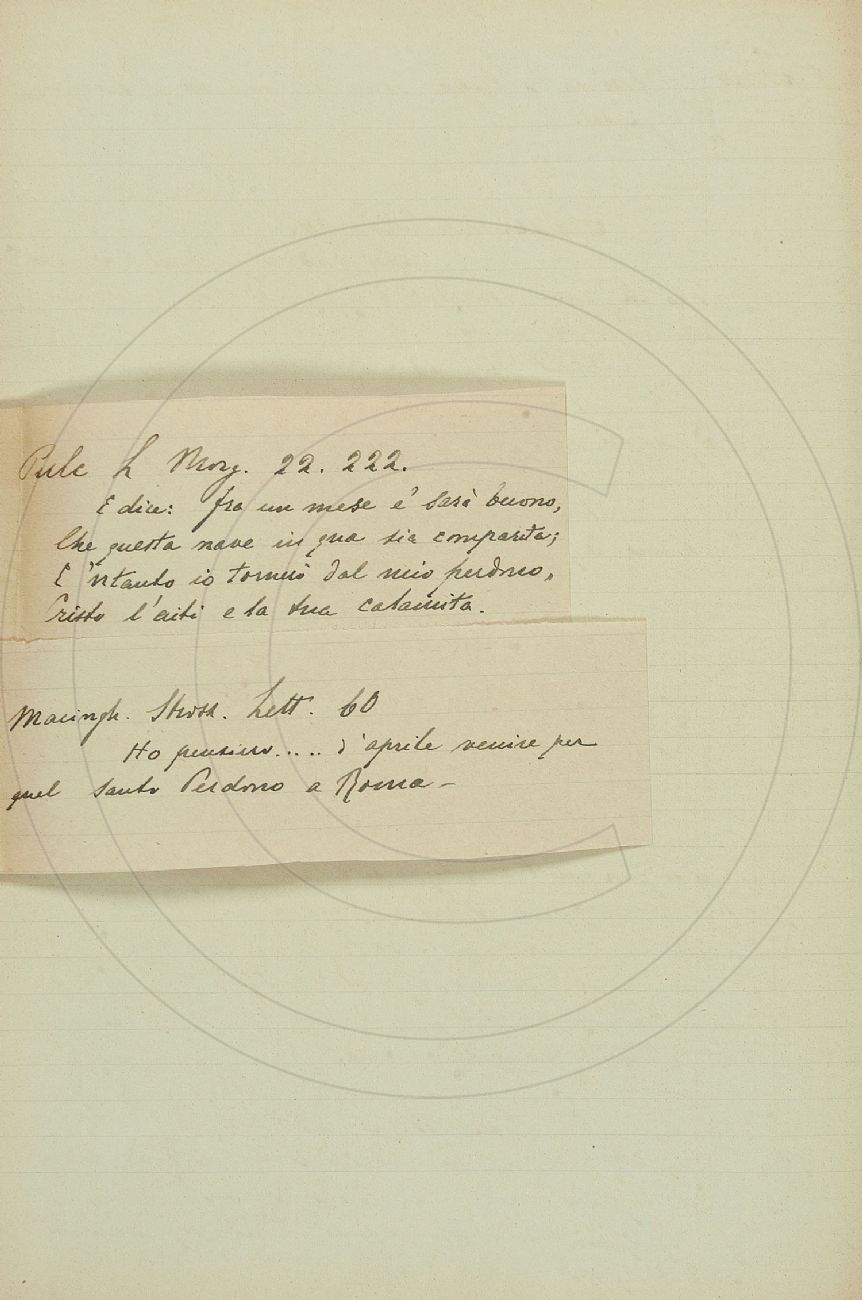 Pulc L Morg. 22. 222.
E dice: fra un mese e' sarà buono,
Che questa nave in qua sia comparita;
E 'ntanto io tornerò dal mio perdono,
Cristo l'aiti e la tua calamita.
Macingh. Strozz. Lett. 60
Ho pensiero..... d'aprile venire per
quel santo Perdono a Roma –